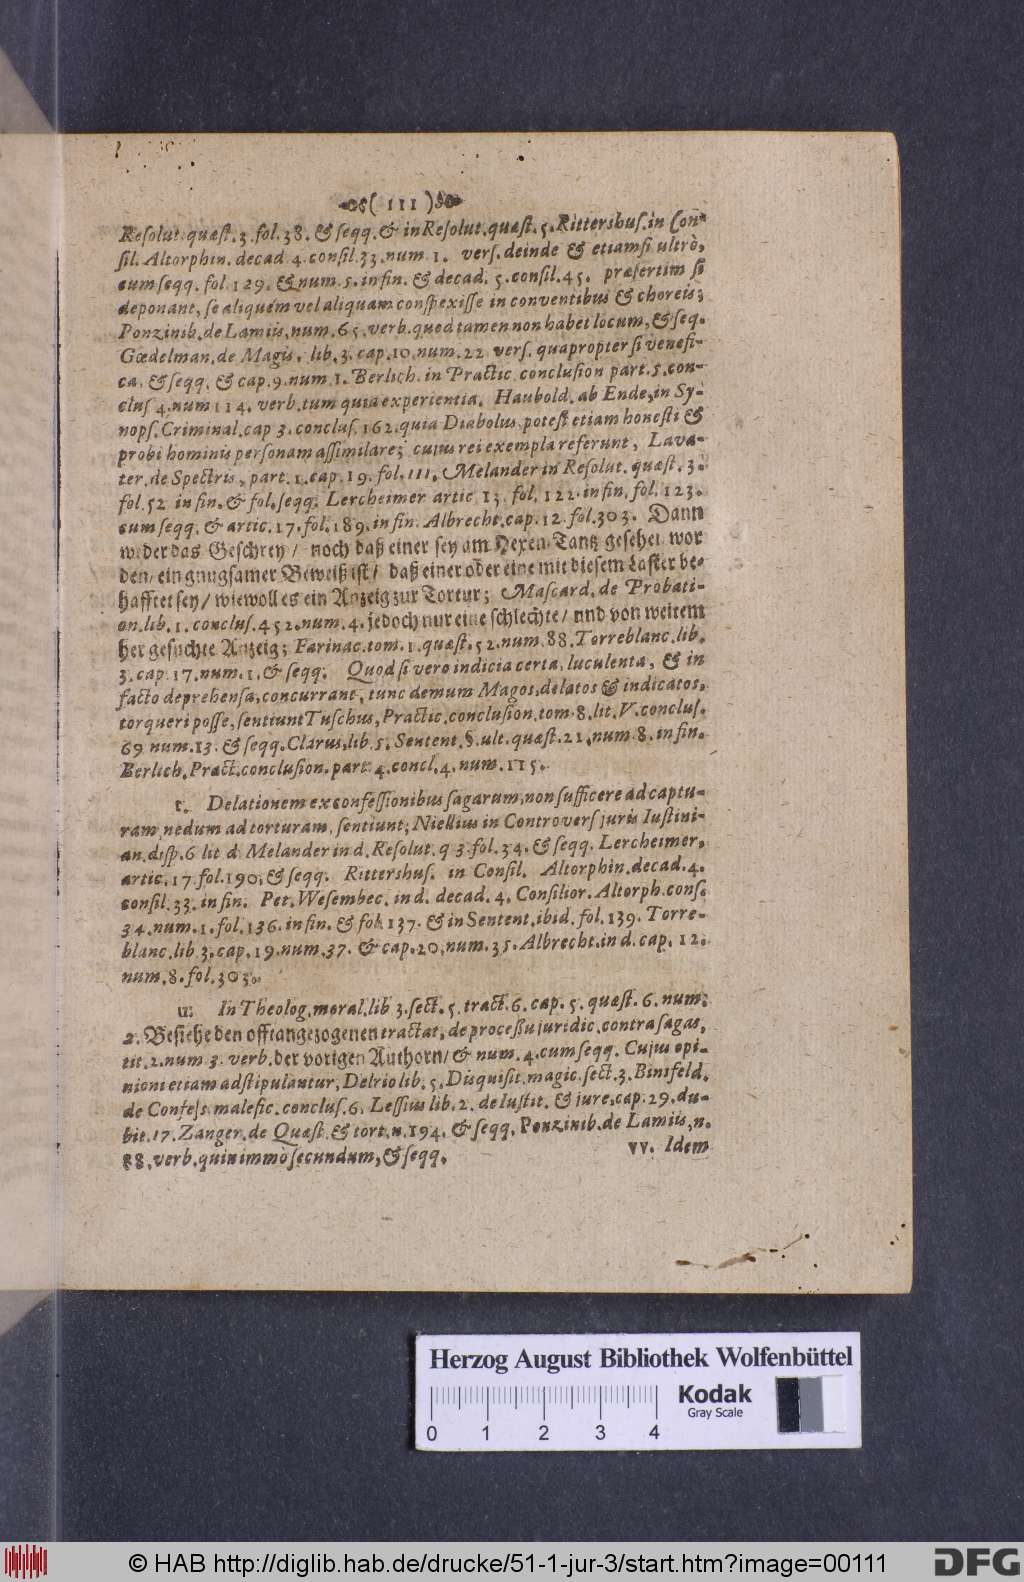 ( 111 )
Resolut. quæst. 3. fol. 38. & seqq. & in Resolut. quæst. 5. Rittershus. in Con-
sil. Altorphin. decad. 4. consil. 33. num. 1. vers. deinde & etiamsi ultrò,
cum seqq. fol. 129. & num. 5. in fin. & decad. 5. consil. 45. præsertim si
deponant, se aliquem vel aliquam conspexisse in conventibus & choreis;
Ponzinib. de Lamiis, num. 65. verb. quod tamen non habet locum, & seq.
Gœdelman. de Magis. lib. 3. cap. 10. num. 22. vers. quapropter si venefi-
ca, & seqq. & cap. 9. num. 1. Berlich. in Practic. conclusion part. 5. con-
clus 4. num 114. verb. tum quia experientia. Haubold. ab Ende, in Sy-
nops. Criminal. cap 3. conclus. 162. quia Diabolus potest etiam honesti &
probi hominis personam assimilare; cujus rei exempla referunt, Lava-
ter. de Spectris, part. 1. cap. 19. fol. 111. Melander in Resolut. quæst. 3.
fol. 52 in fin. & fol. seqq. Lercheimer artic. 13. fol. 122. in fin. fol. 123.
cum seqq. & artic. 17. fol. 189. in fin. Albrecht. cap. 12. fol. 303. Dann
weder das Geschrey / noch daß einer sey am Hexen-Tantz gesehen wor
den / ein gnugsamer Beweiß ist / daß einer oder eine mit diesem Laster be-
hafftet sey / wiewoll es ein Anzeig zur Tortur; Mascard. de Probati-
on. lib. 1. conclus. 452. num. 4. jedoch nur eine schlechte / und von weitem
her gesuchte Anzeig; Farinac. tom. 1. quæst. 52. num. 88. Torreblanc. lib.
3. cap. 17. num. 1. & seqq. Quod si vero indicia certa, luculenta, & in
facto deprehensa, concurrant, tunc demum Magos, delatos & indicatos,
torqueri posse, sentiunt Tuschus, Practic. conclusion. tom. 8. lit. V. conclus.
69 num. 13. & seqq. Clarus, lib. 5. Sentent. §. ult. quæst. 21. num. 8. in fin.
Berlich. Pract. conclusion. part. 4. concl. 4. num. 115.
t. Delationem ex confessionibus sagarum, non sufficere ad captu-
ram, nedum ad torturam, sentiunt; Niellius in Controvers juris Iustini-
an. disp. 6 lit d. Melander in d. Resolut. q 3 fol. 34. & seqq. Lercheimer,
artic. 17. fol. 190. & seqq. Rittershus. in Consil. Altorphin. decad. 4.
consil. 33. in fin. Pet. Wesembec. in d. decad. 4. Consilior. Altorph. cons.
34. num. 1. fol. 136. in fin. & fol. 137. & in Sentent. ibid. fol. 139. Torre-
blanc. lib 3. cap. 19. num. 37. & cap. 20. num. 35. Albrecht. in d. cap. 12.
num. 8. fol. 303.
u. In Theolog. moral. lib 3. sect. 5. tract. 6. cap. 5. quæst. 6. num.
2. Besiehe den offt angezogenen tractat, de processu juridic. contra sagas,
tit. 2. num 3. verb. der vorigen Authorn / & num. 4. cum seqq. Cujus opi-
nioni etiam adstipulantur, Delrio lib. 5. Disquisit. magic. sect. 3. Binsfeld.
de Confess. malefic. conclus. 6. Lessius lib. 2. de Iustit. & jure, cap. 29. du-
bit. 17. Zanger. de Quæst. & tort. n. 194. & seqq. Ponzinib. de Lamiis, n.
88. verb. quinimmò secundum, & seqq. vv. Idem
Herzog August Bibliothek Wolfenbüttel
Kodak
Gray Scale
0 1 2 3 4
© HAB http://diglib.hab.de/drucke/51-1-jur-3/start.htm?image=00111
DFG